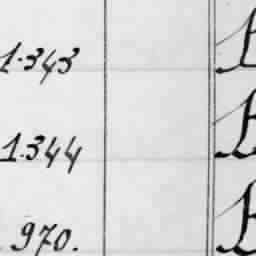 1.343
1.344
970.